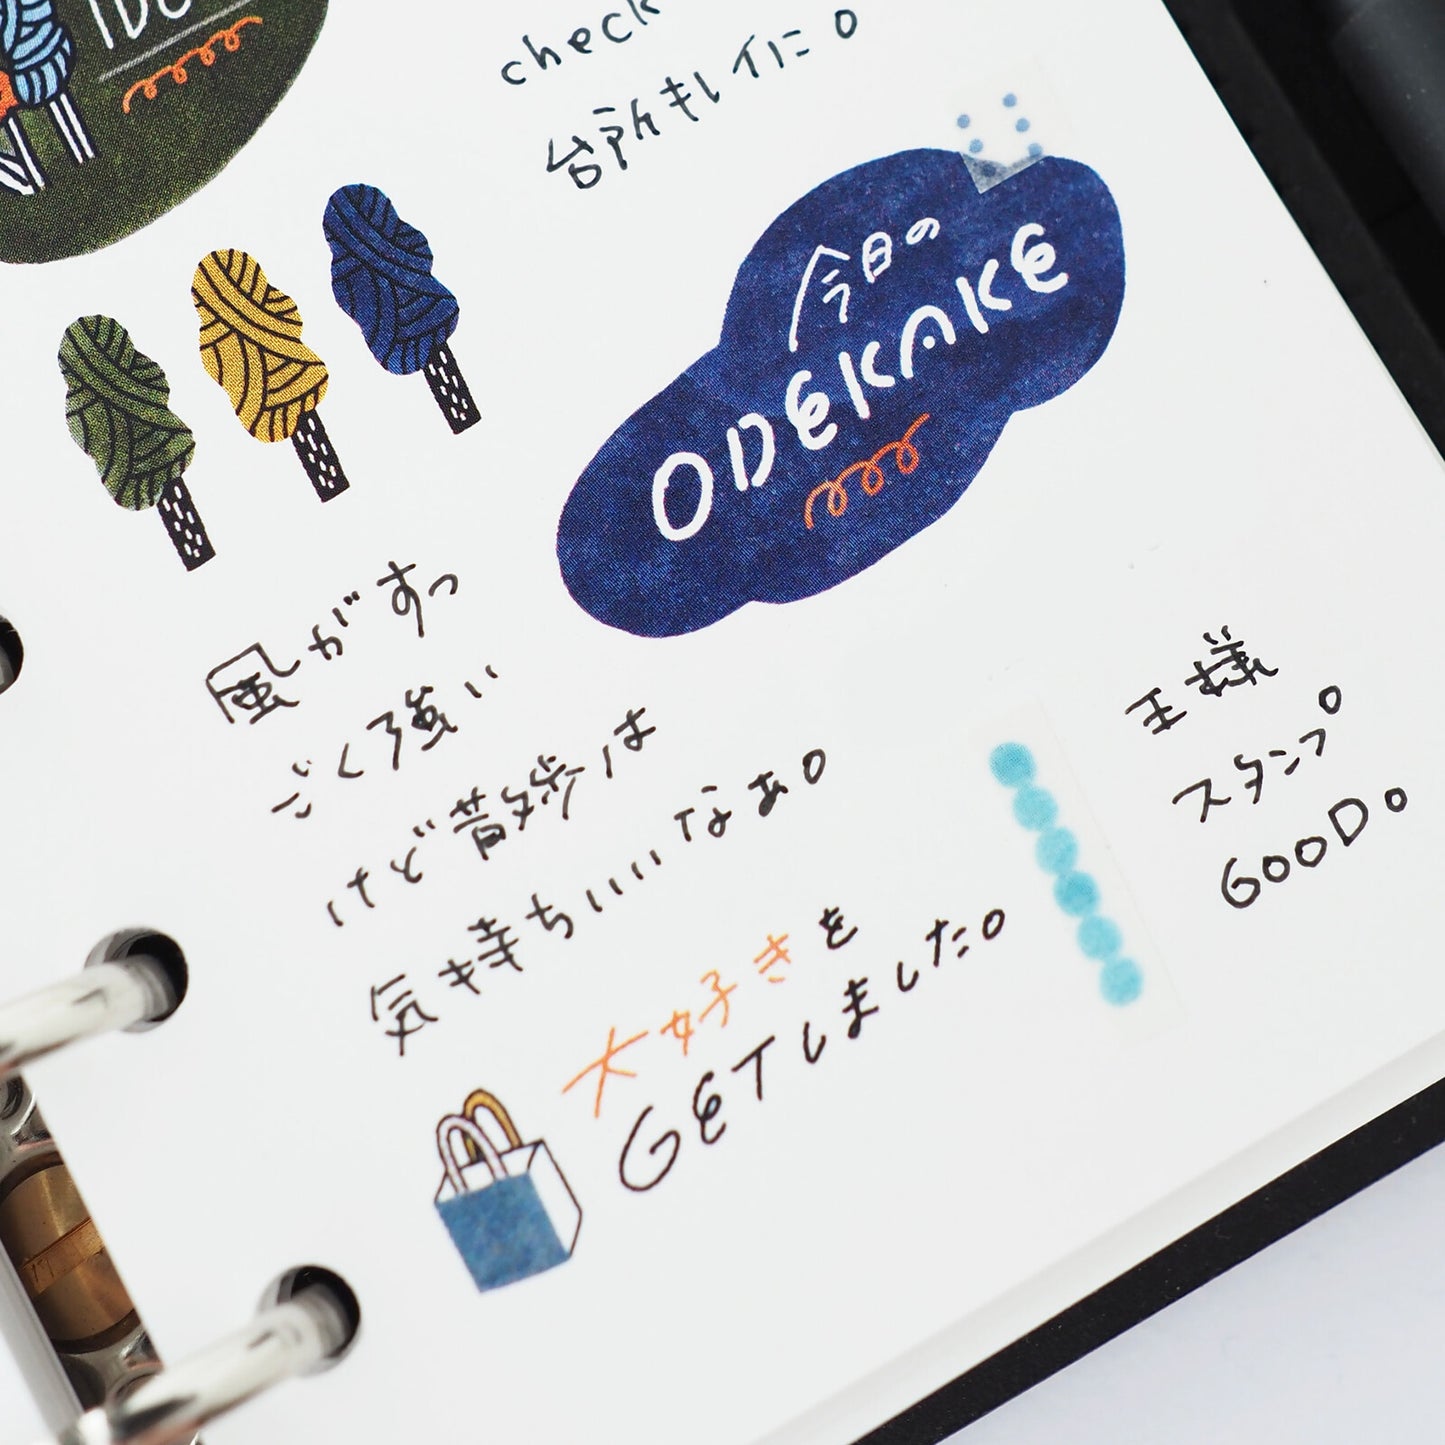 check
台所キレイに。
今日の
ODEKAKE
風がすっ
ごく強い
けど散歩は
気持ちいいなぁ。
大好きを
GETしました。
王様
スタンプ
GOOD。